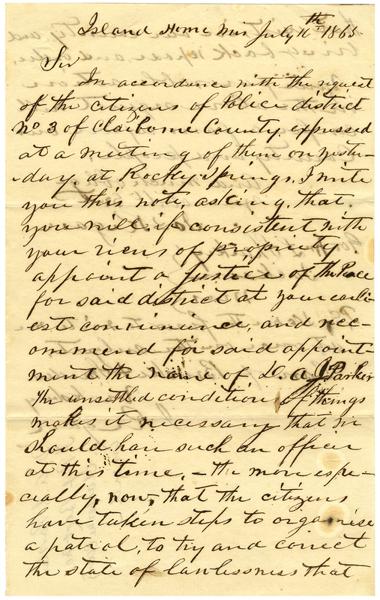 Island Home Miss July 16th 1865
Sir
In accordance with the request
of the citizens of Police district
No 3 of Claiborne County, expressed
at a meeting of them on yester-
day, at Rocky Springs, I write
you this note, asking, that,
you will, if consistent with
your views of propriety
appoint a Justice of the Peace
for said district at your earli-
est convinience, and rec-
ommend for said appoint
ment the name of Parker
The unsettled condition of things
makes it necessary that we
should have such an officer
at this time, - the more espe-
cially, now, that the citizens
have taken steps to organise
a patrol, to try and correct
the state of lawlessness that